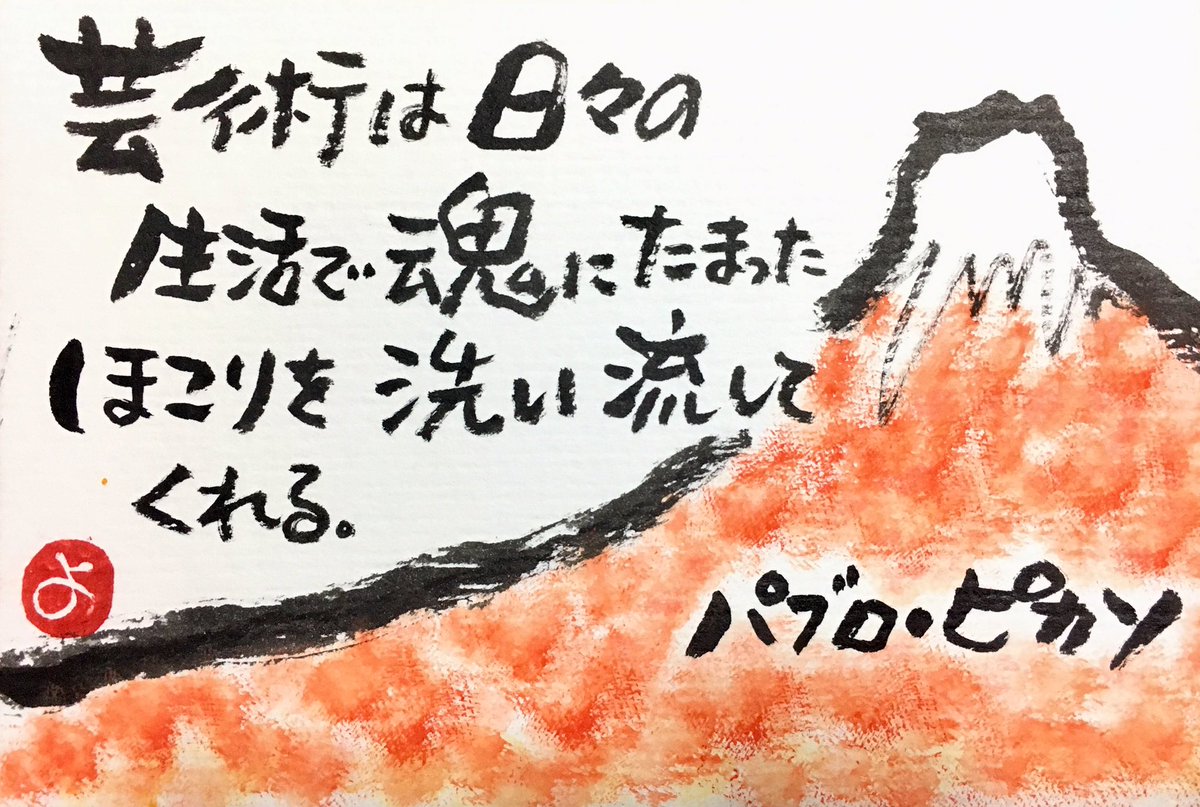 芸術は日々の
生活で魂にたまった
ほこりを洗い流して
くれる。
よ
パブロ・ピカソ